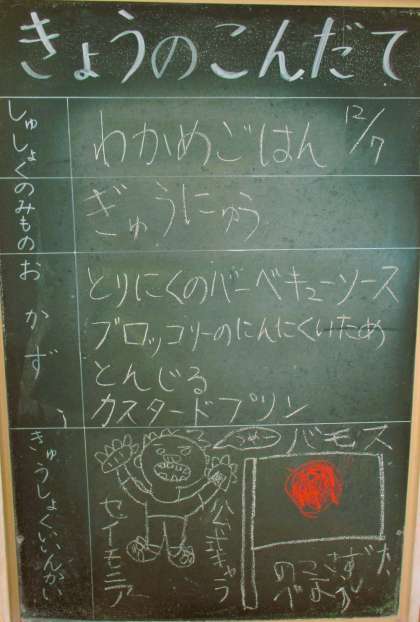 きょうのこんだて
しゅしょく
わかめごはん
12/7
のみもの
ぎゅうにゅう
おかず
とりにくのバーベキューソース
ブロッコリーのにんにくいため
とんじる
カスタードプリン
きゅうしょくいいんかい
バモス
セイモニア
公ニキャラ